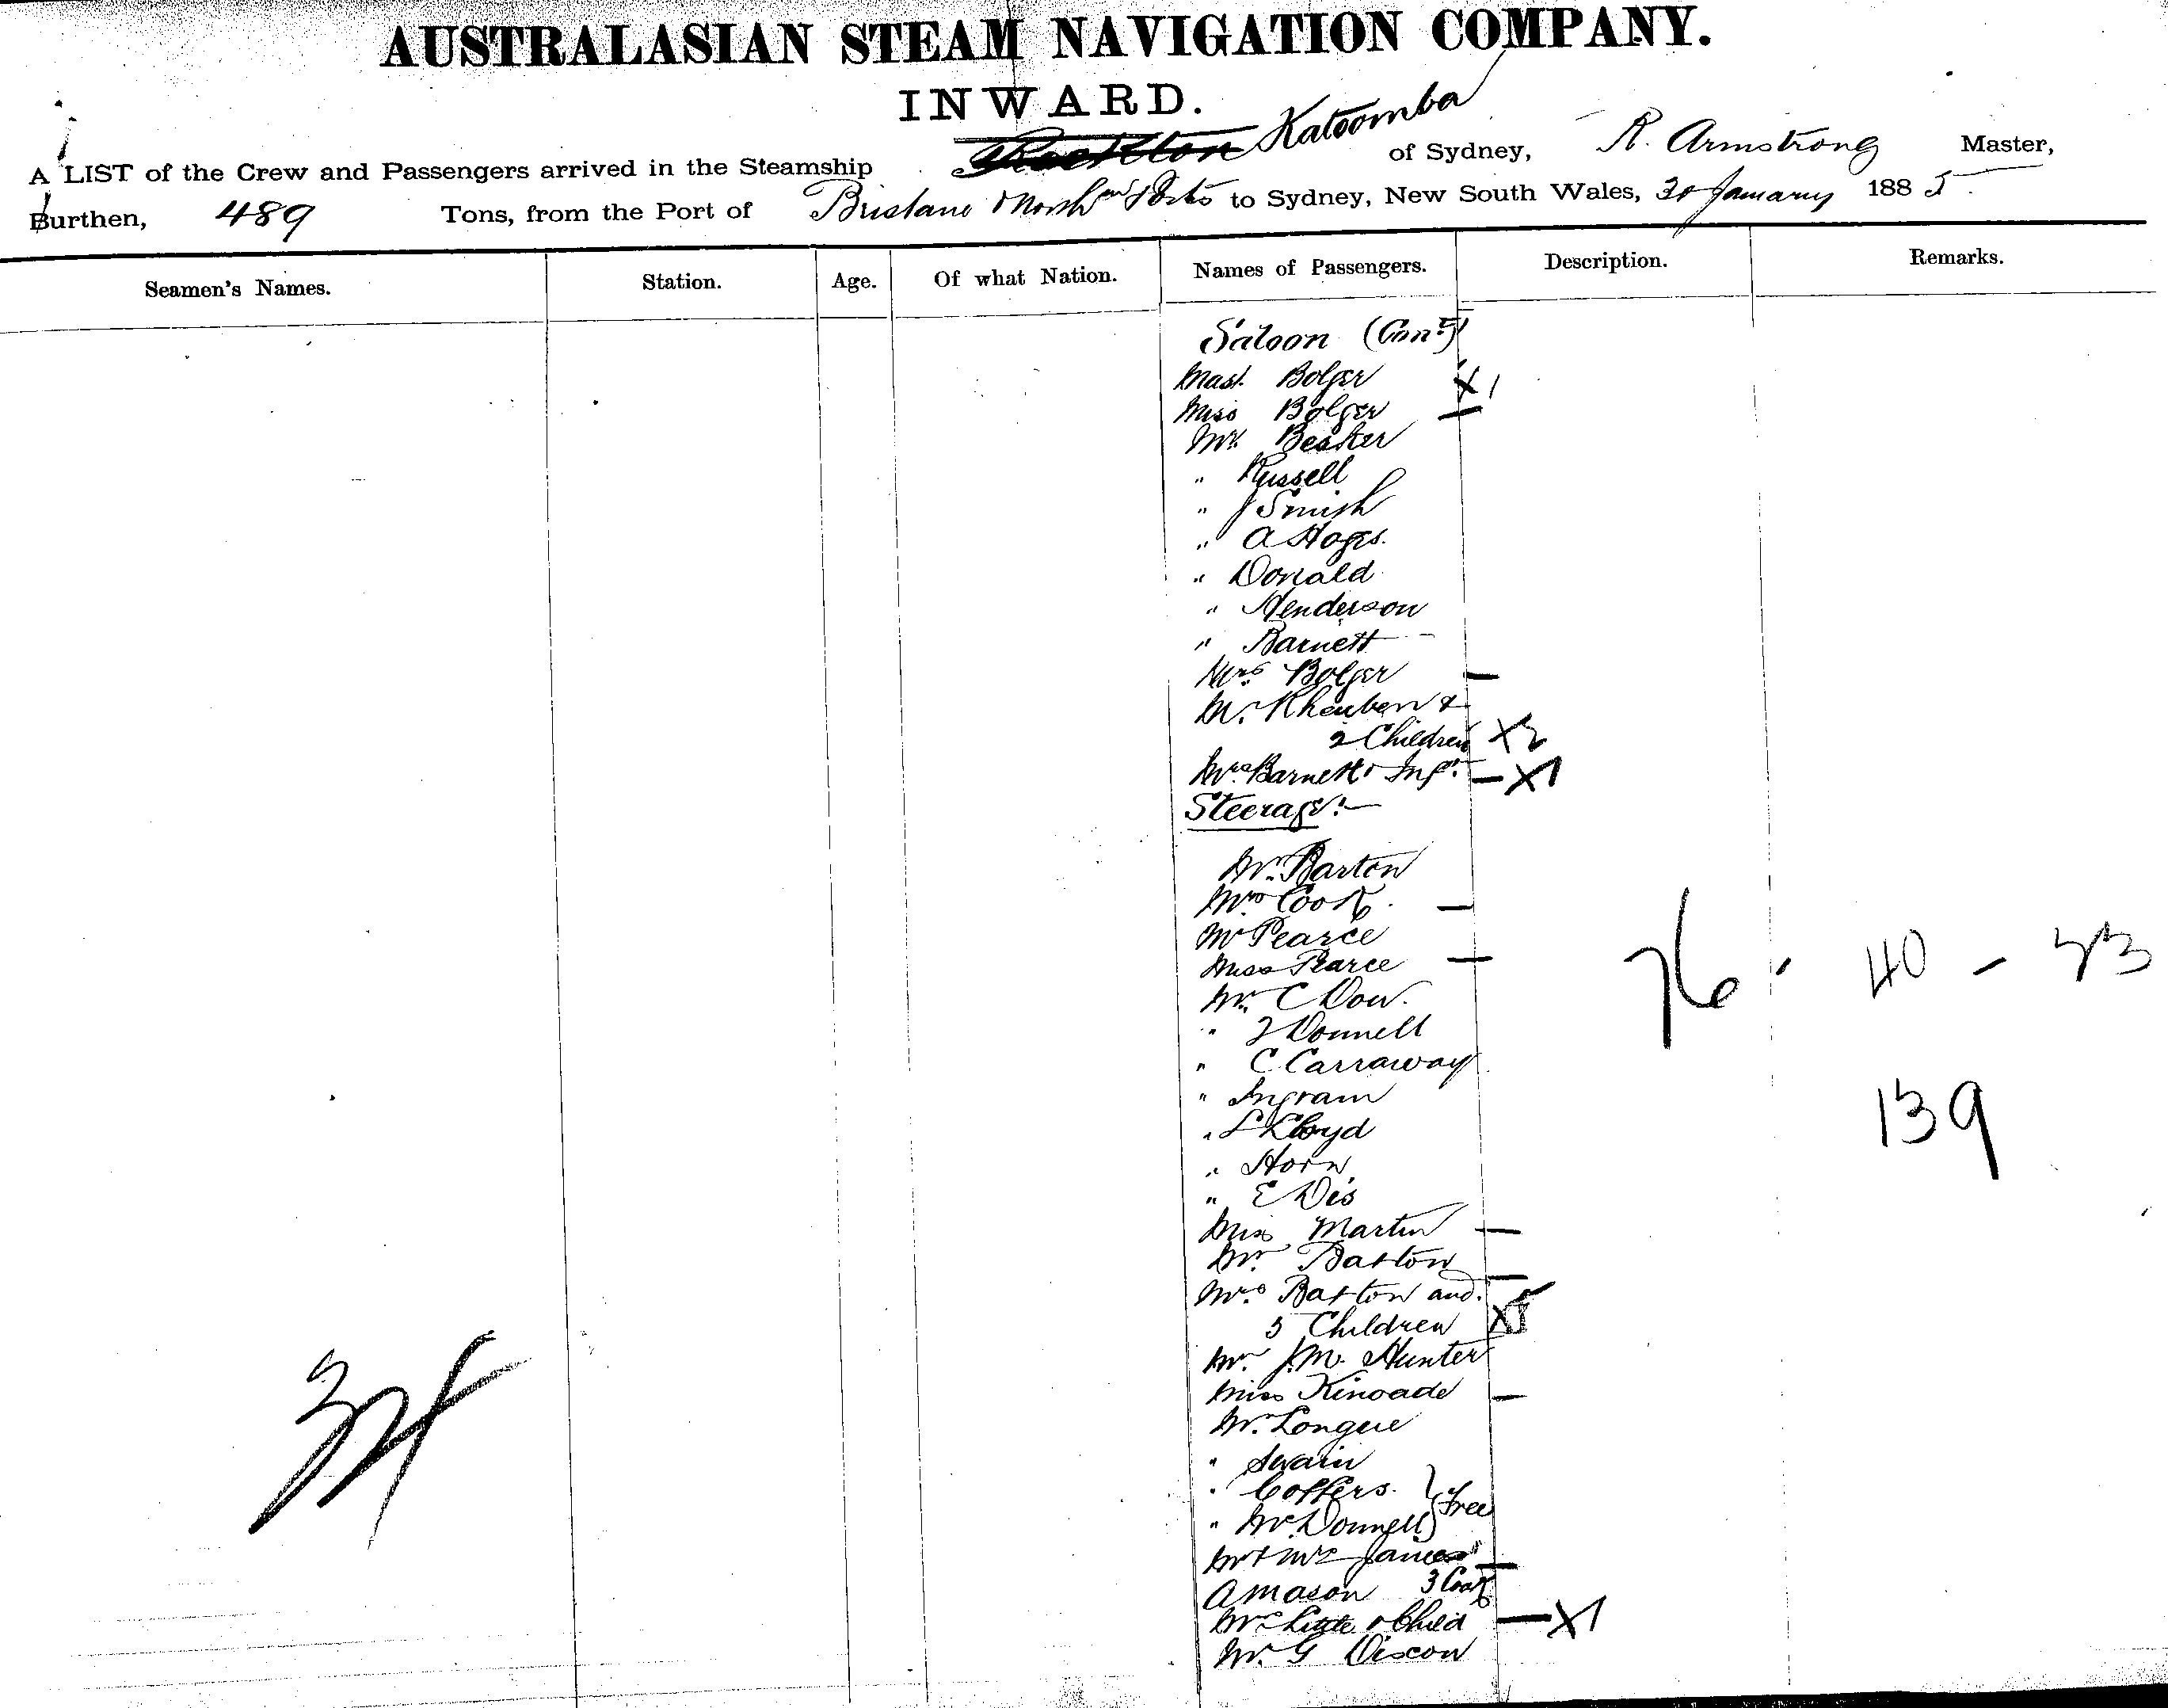 AUSTRALASIAN STEAM NAVIGATION COMPANY.
INWARD.
A LIST of the Crew and Passengers arrived in the Steamship Katoomba of Sydney, R. Armstrong Master,
Burthen, 489 Tons, from the Port of Brisbane & North'n Ports to Sydney, New South Wales, 30 January 1885.
Seamen's Names. Station. Age. Of what Nation. Names of Passengers. Description. Remarks.
Saloon (Cont'd)
Mast. Bolger X1
Miss Bolger —
Mr. Beaker
" Russell
" J Smith
" A
" Donald
" Henderson
" Barnett
Mrs Bolger —
Mr. Kheuben &
2 Children X2
Mrs Barnett & Inft. — X1
Steerage:—
Mr. Barton
Mrs Cook —
Mr Pearce
Miss Pearce —
Mr. C Dow.
" J Donnell
" C. Carraway
" Ingram
" L Lloyd
" Horn
" E Dis
Miss Martin —
Mr. Batton
Mrs Batton and —
5 Children X5
Mr. J.M. Hunter
Miss Kincade —
Mr. Longue
" Swain
" Coffers. } Free
" McDonnell
Mr & Mrs James —
A Mason 3 Cook
Mrs Little & Child — X1
Mr. G Discon
76 - 40 - 23
139